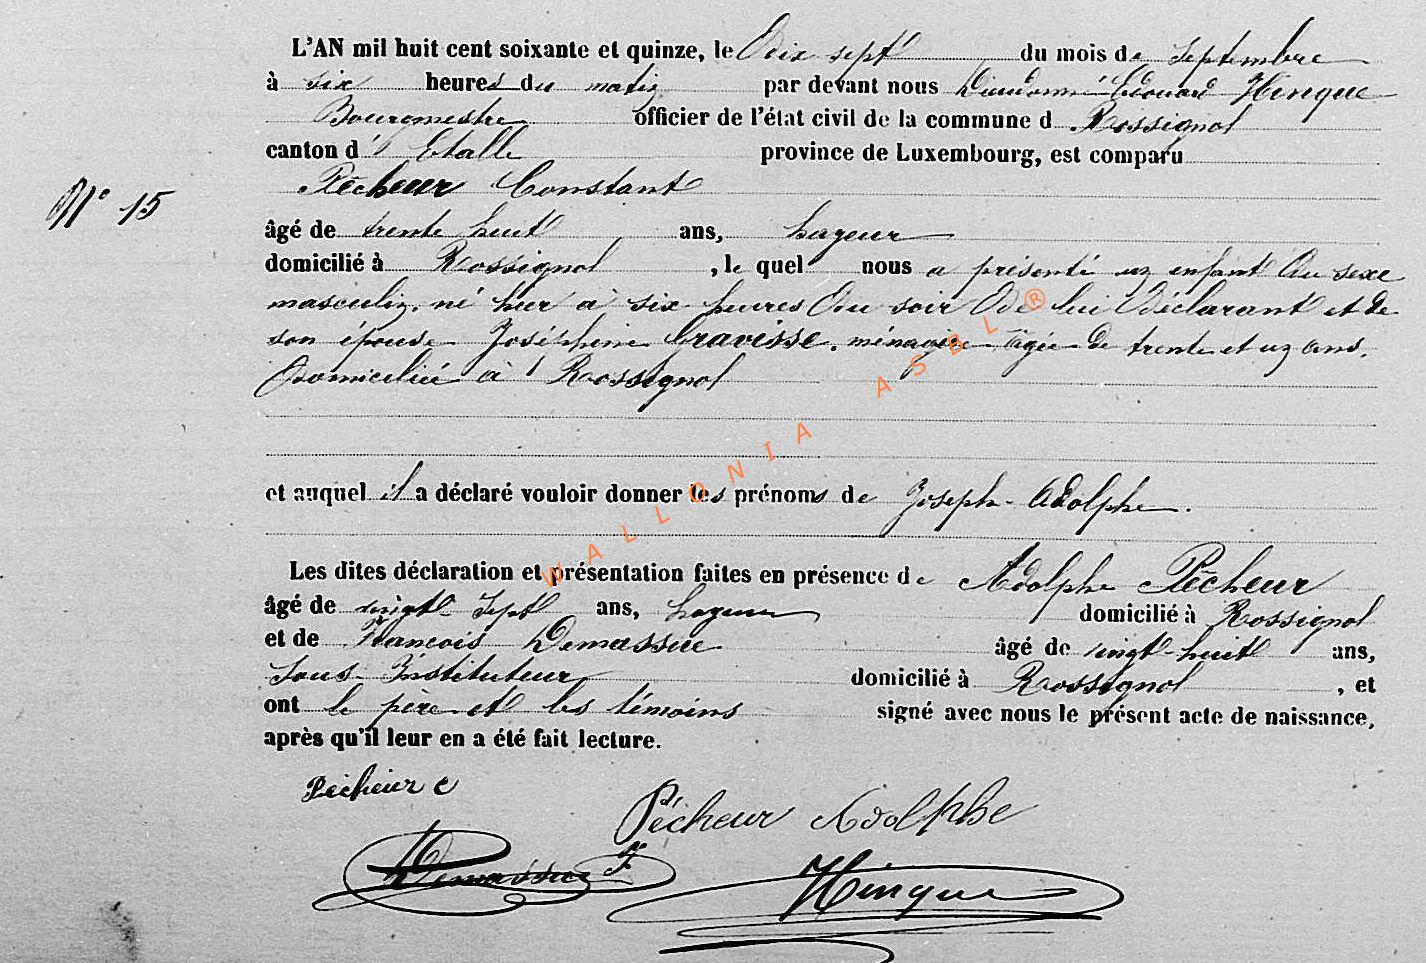 L'AN mil huit cent soixante et quinze, le Dix sept du mois de Septembre
à six heures du matin par devant nous Dieudonné Edouard Hinque
Bourgmestre officier de l'état civil de la commune d Rossignol
canton d'Etalle province de Luxembourg, est comparu
Pêcheur Constant
N° 15
âgé de trente huit ans,
domicilié à Rossignol, le quel nous a présenté un enfant du sexe
masculin, né hier à six heures du soir de lui déclarant et de
son épouse Joséphine Gravisse, ménagère âgée de trente et un ans,
domiciliée à Rossignol
et auquel il a déclaré vouloir donner les prénoms de Joseph-Adolphe.
Les dites déclaration et présentation faites en présence de Adolphe Pêcheur
âgé de vingt sept ans, domicilié à Rossignol
et de François Demassue âgé de vingt-huit ans,
Sous-Instituteur domicilié à Rossignol, et
ont le père et les témoins signé avec nous le présent acte de naissance,
après qu'il leur en a été fait lecture.
Pêcheur C
Pêcheur Adolphe
Demassue F
Hinque
WALLONIA ASBL ®